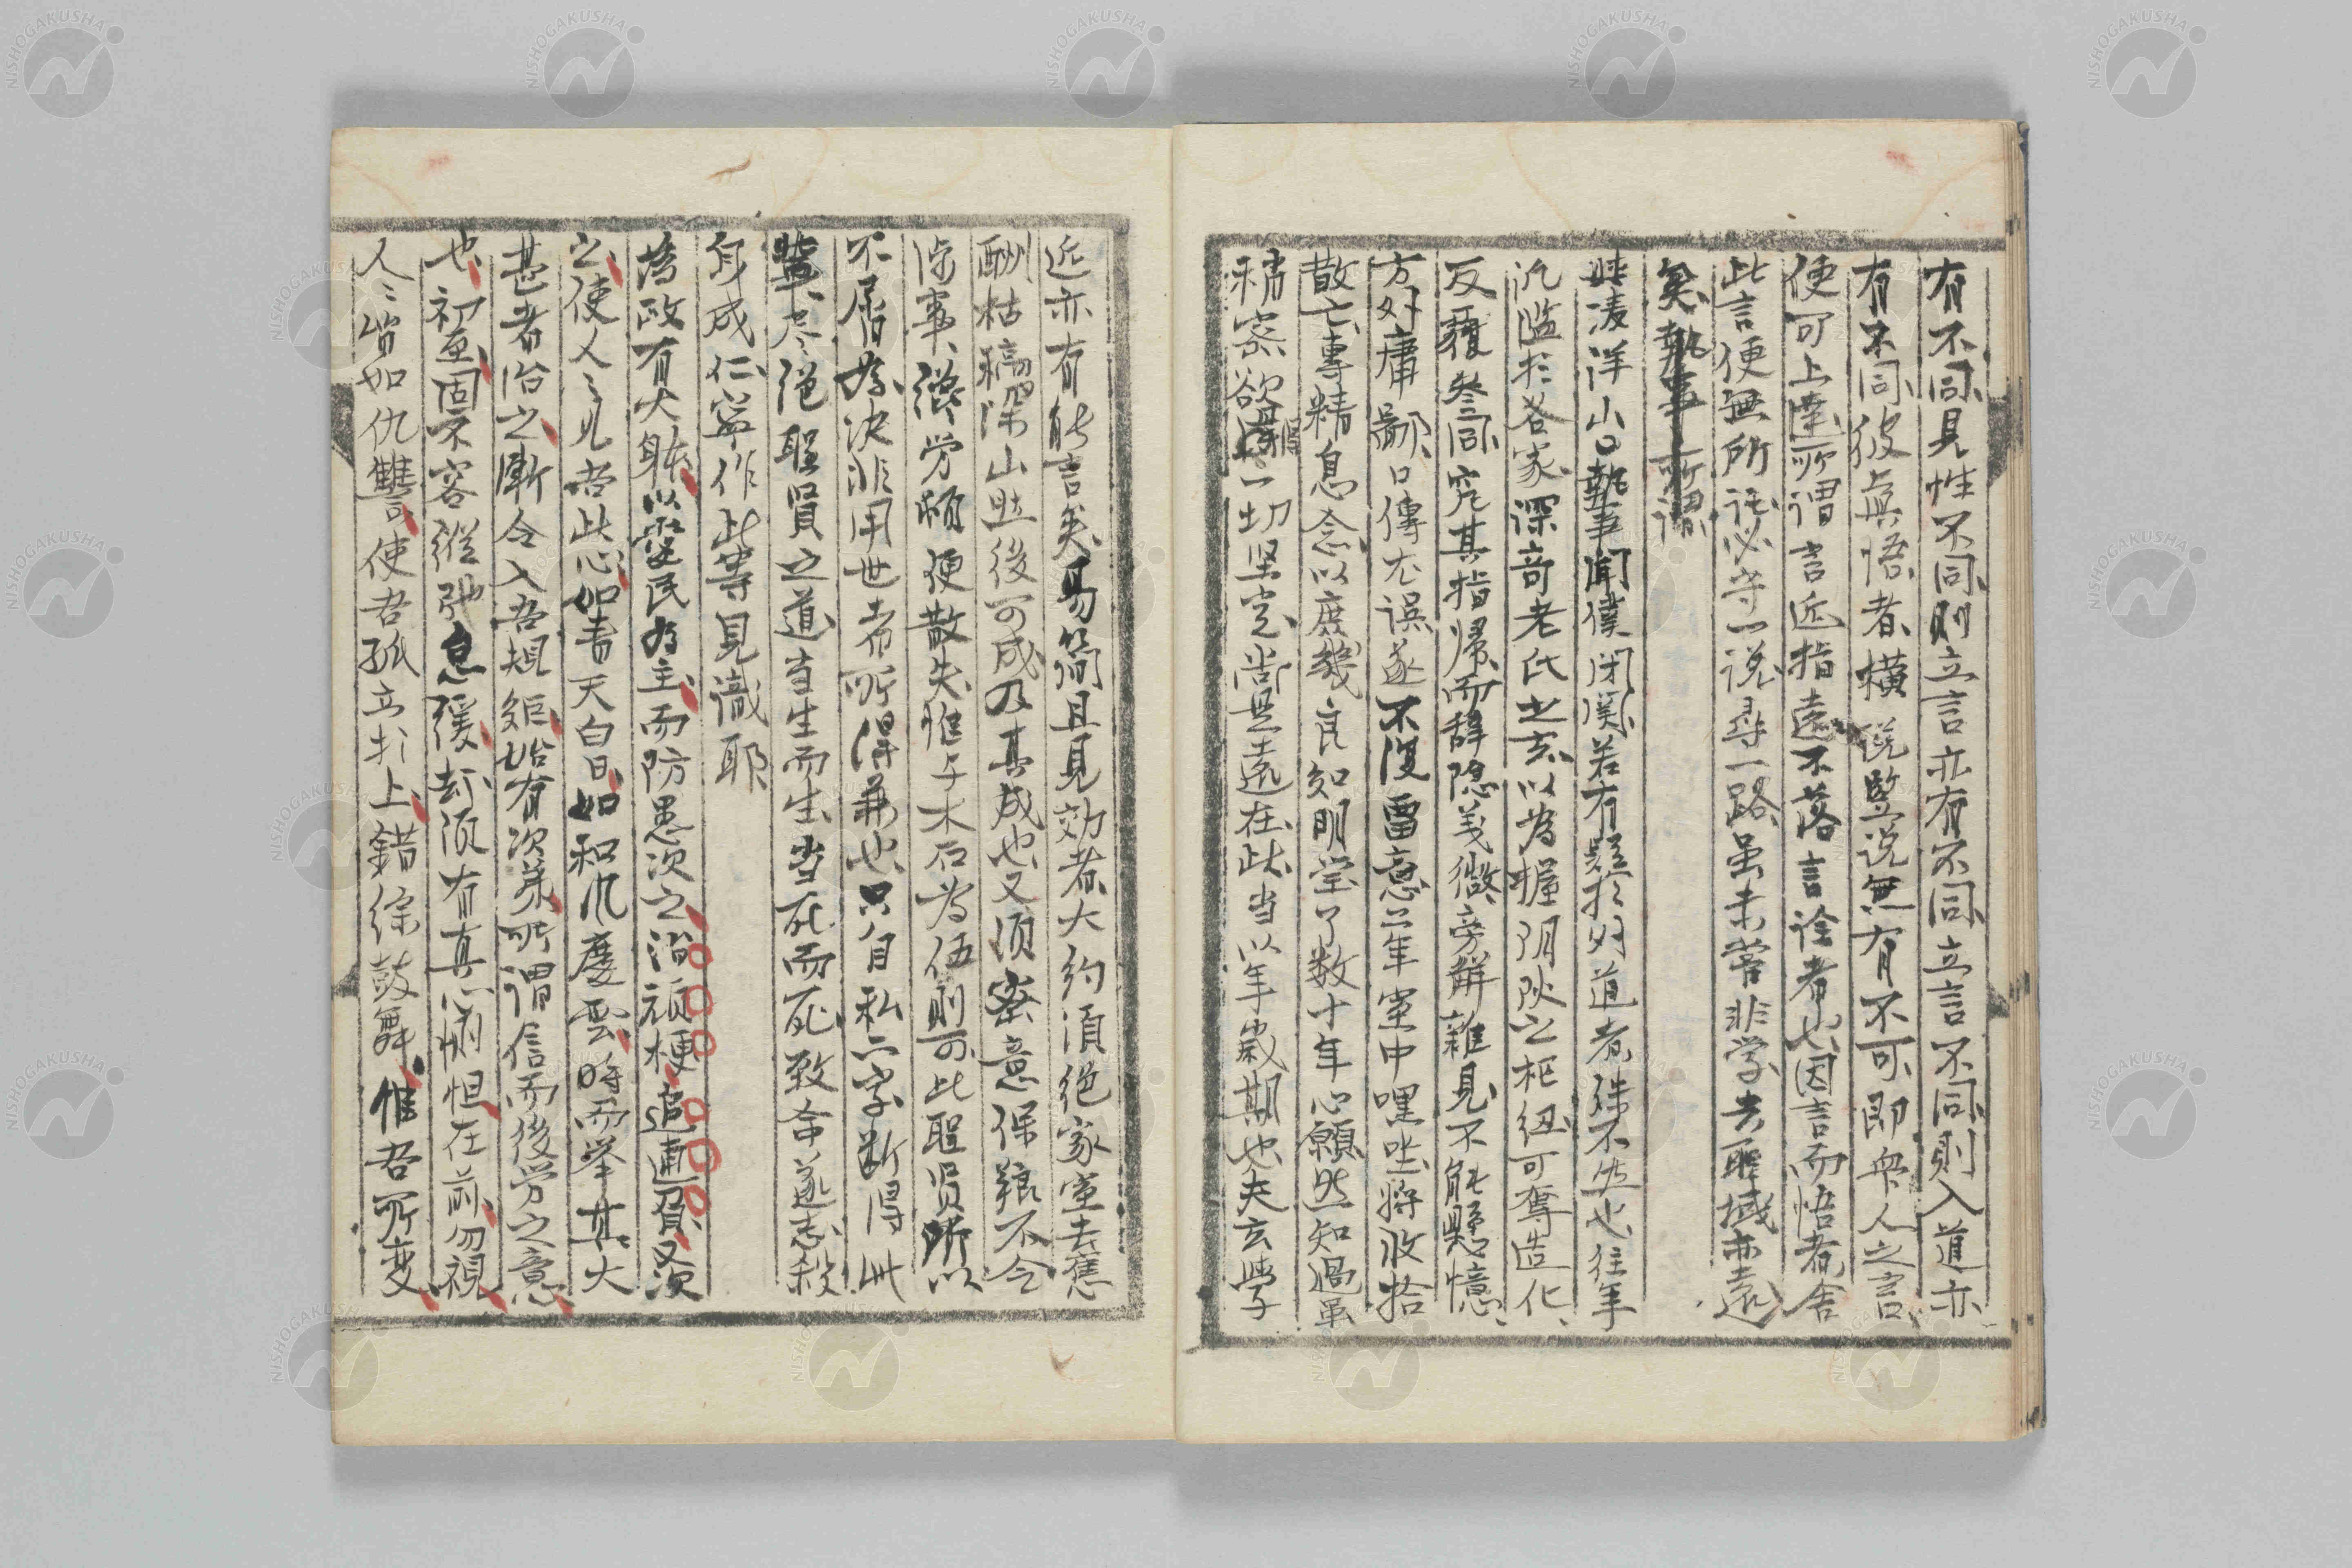 有不同、見性不同、則立言亦有不同、立言不同、則入道亦
有不同、彼真悟者、橫說竪說無有不可、即衆人之言、
便可上達、所謂言近指遠不落言詮者也、因言而悟者、舍
此言便無所託、必守一說、尋一路、虽未嘗非学、去聖域亦遠
矣、執事所謂
洋小口執事聞僕閉関、若有疑於外道者、殊不然也、往年
汎濫於各家、深奇老氏之玄、以為握陰陽之柩紐可奪造化、
反覆叅同、究其指帰、而辞隠義微、旁觧雜見、不能懸憶、
方外庸口傳尤誤、遂不復畱意、二年室中嘿坐、将收拾
散亡、專精息念、以庶幾良知明瑩、了数十年心願、然知過虽
精察、欲得一切坚定、尚是遠在、此当以年歲期也、夫玄學
近亦有能言矣、易簡且見効者、大約須絶家室去舊
酬、枯稿深山、然後可成、及其成也、又須密意保粮、不令
涉事、縱労頓便散失、惟与木石為伍則可、此聖賢所以
不屑為、決非用世者所得兼也、只自私二字断得此
輩、尽絶聖賢之道、当生而生、当死而死、致命遂志、殺
身成仁、寧作此等見識耶
為政有大賬、以愛民為主、而防患次之、治頑梗、追逋負又次
之、使人々見吾此心、如青天白日、如和风慶雲、時而举其大
甚者治之、漸令入吾規矩、始有次第、所謂信而後労之意
也、初畫固不容縱弛怠緩、却須有真心惻怛在前、勿視
人々皆如仇讐、使吾孤立於上、錯綜鼓舞、惟吾所变、